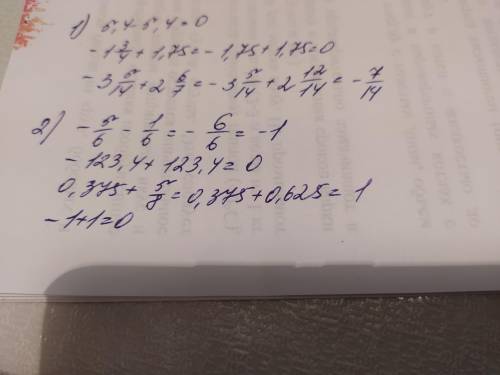 1) 5,4-5,4=0
-1 3/4 + 1,75 = -1,75 + 1,75 = 0
-3 5/14 + 2 6/7 = -3 5/14 + 2 12/14 = - 7/14
2) - 5/6 - 1/6 = - 6/6 = -1
-123,4 + 123,4 = 0
0,375 + 5/8 = 0,375 + 0,625 = 1
-1+1=0